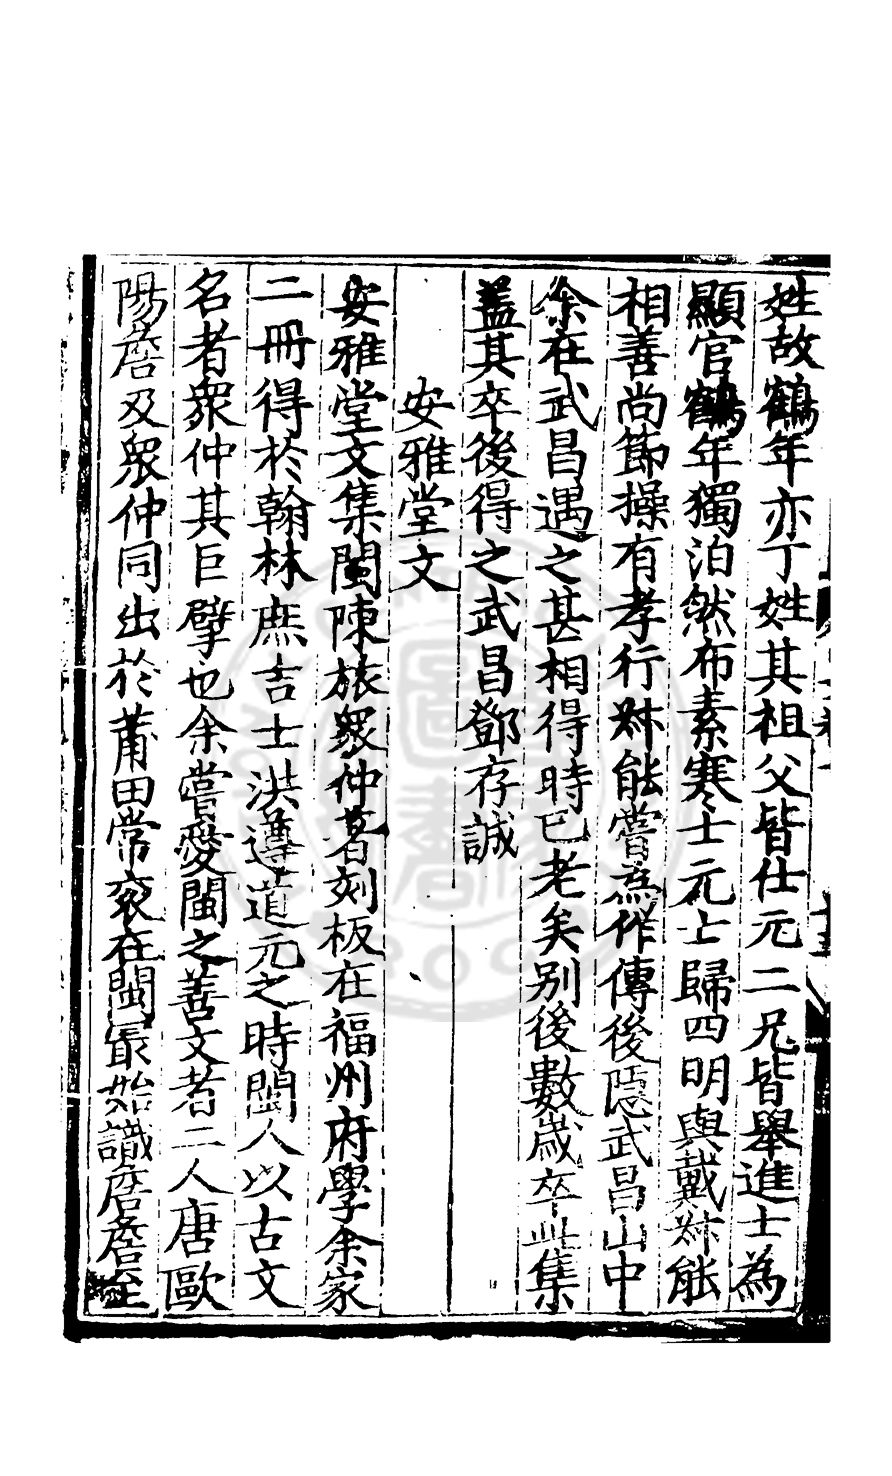 姓故鶴年亦丁姓其祖父皆仕元二兄皆舉進士為
顯官鶴年獨泊然布素寒士元亡歸四明與戴叔能
相善尚節操有孝行叔能嘗為作傳後隱武昌山中
余在武昌遇之甚相得時已老矣别後數歲卒此集
蓋其卒後得之武昌鄧存誠
安雅堂文
安雅堂文集閩陳旅衆仲著刻板在福州府學余家
二冊得於翰林庶吉士洪遵道元之時閩人以古文
名者衆仲其巨擘也余嘗愛閩之善文者二人唐歐
陽詹及衆仲同出於莆田常衮在閩最始識詹詹至